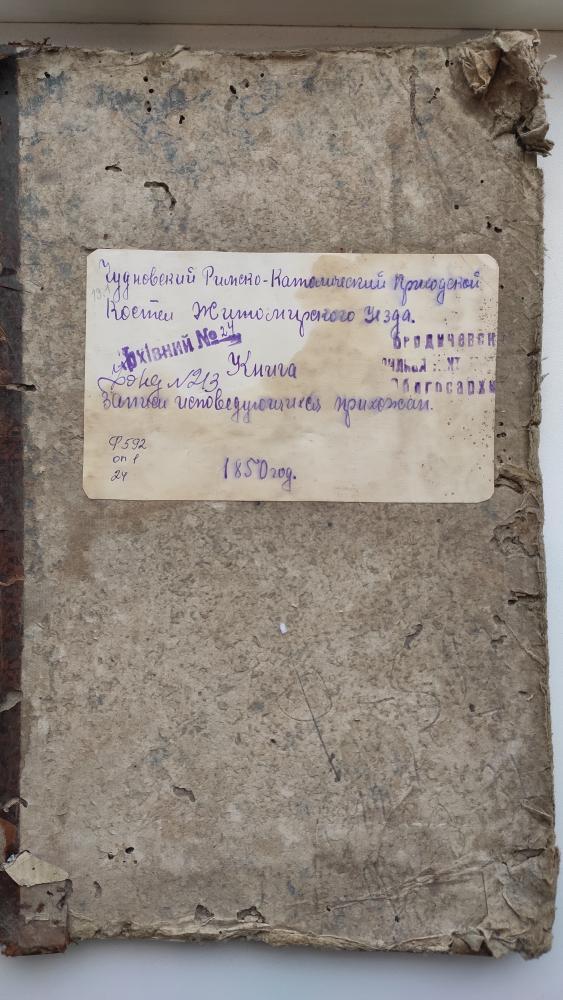 Чудновский Римско-Католический приходской
Костел Житомирского Уезда.
Архівний № 24
Фонд № 213
Книга
Записи исповедующихся прихожан.
Ф 592
оп 1
24
1850 год.